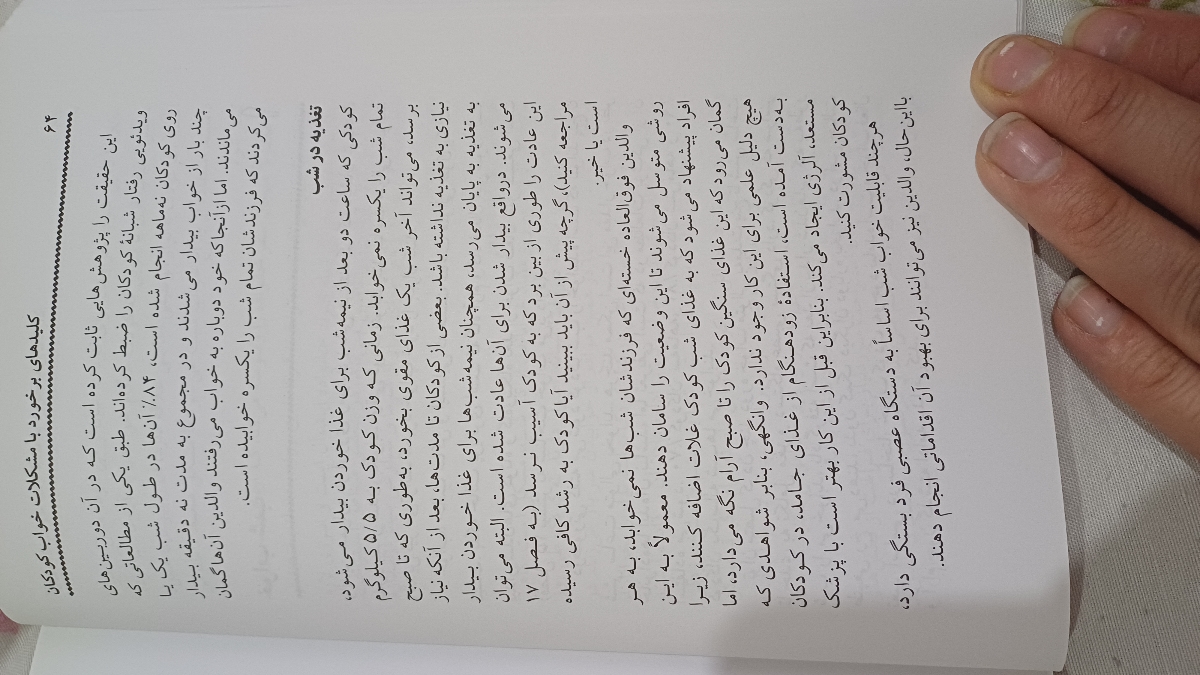 ۶۴
کلیدهای برخورد با مشکلات خواب کودکان
این حقیقت را پژوهش‌هایی ثابت کرده است که در آن دوربین‌های
ویدئویی رفتار شبانهٔ کودکان را ضبط کرده‌اند. طبق یکی از مطالعاتی که
روی کودکان نه‌ماهه انجام شده است، ۸۴٪ آن‌ها در طول شب یک یا
چند بار از خواب بیدار می‌شدند و در مجموع به مدت نه دقیقه بیدار
می‌ماندند. اما ازآنجاکه خود دوباره به خواب می‌رفتند والدین آن‌ها گمان
می‌کردند که فرزندشان تمام شب را یکسره خوابیده است.
تغذیه در شب
کودکی که ساعت دو بعد از نیمه‌شب برای غذا خوردن بیدار می‌شود،
تمام شب را یکسره نمی‌خوابد. زمانی که وزن کودک به ۵/۵ کیلوگرم
برسد، می‌تواند آخر شب یک غذای مقوی بخورد، به‌طوری که تا صبح
نیازی به تغذیه نداشته باشد. بعضی از کودکان تا مدت‌ها، بعد از آنکه نیاز
به تغذیه به پایان می‌رسد، همچنان نیمه‌شب‌ها برای غذا خوردن بیدار
می‌شوند. درواقع بیدار شدن برای آن‌ها عادت شده است. البته می‌توان
این عادت را طوری از بین برد که به کودک آسیب نرسد (به فصل ۱۷
مراجعه کنید)، گرچه پیش از آن باید ببینید آیا کودک به رشد کافی رسیده
است یا خیر.
والدین فوق‌العاده خسته‌ای که فرزندشان شب‌ها نمی‌خوابد، به هر
روشی متوسل می‌شوند تا این وضعیت را سامان دهند. معمولاً به این
افراد پیشنهاد می‌شود که به غذای شب کودک غلات اضافه کنند، زیرا
گمان می‌رود که این غذای سنگین کودک را تا صبح آرام نگه می‌دارد، اما
هیچ دلیل علمی برای این کار وجود ندارد. وانگهی، بنابر شواهدی که
به‌دست آمده است، استفاده زودهنگام از غذای جامد، در کودکان
مستعد، آلرژی ایجاد می‌کند. بنابراین قبل از این کار بهتر است با پزشک
کودکان مشورت کنید.
هرچند قابلیت خواب شب اساساً به دستگاه عصبی فرد بستگی دارد،
بااین‌حال، والدین نیز می‌توانند برای بهبود آن اقداماتی انجام دهند.